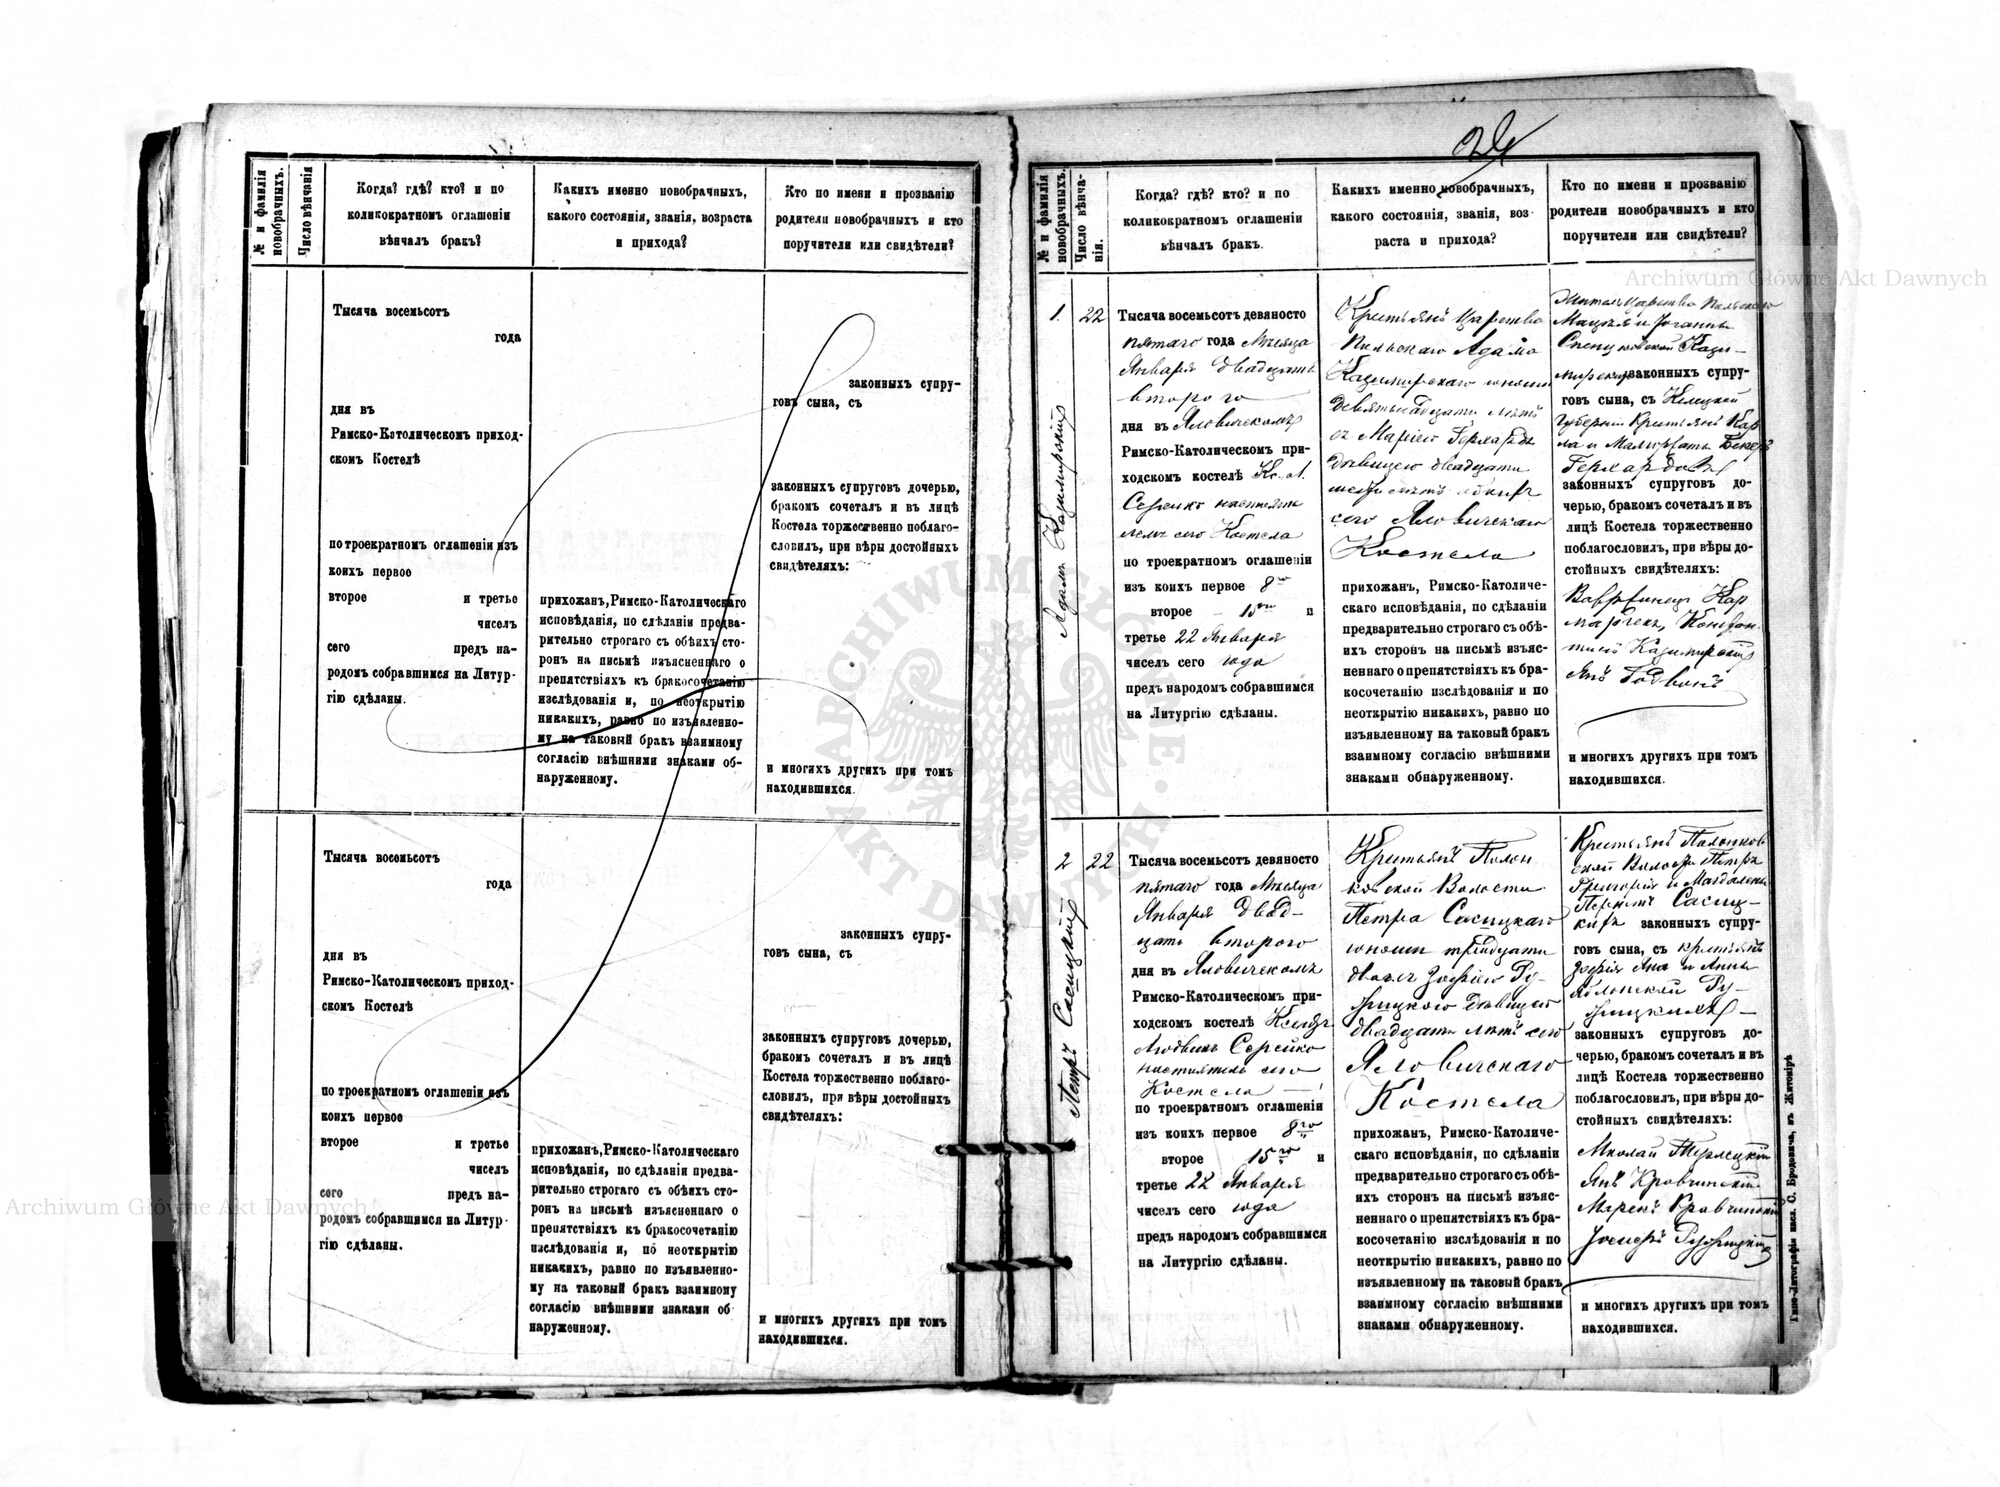 № и фамилія новобрачныхъ.
Число вѣнчанія
Когда? гдѣ? кто? и по
коликократномъ оглашеніи
вѣнчалъ бракъ?
Какихъ именно новобрачныхъ,
какого состоянія, званія, возраста
и прихода?
Кто по имени и прозванію
родители новобрачныхъ и кто
поручители или свидѣтели?
Тысяча восемьсотъ
года
дня въ
Римско-Католическомъ приход-
скомъ Костелѣ
по троекратномъ оглашеніи изъ
коихъ первое
второе и третье
чиселъ
сего предъ на-
родомъ собравшимся на Литур-
гію сдѣланы.
прихожан, Римско-Католическаго
исповѣданія, по сдѣланіи предва-
рительно строгаго съ обѣихъ сто-
ронъ на письмѣ изъясненнаго о
препятствіяхъ къ бракосочетанію
изслѣдованія и, по неоткрытію
никакихъ, равно по изъявленно-
му на таковый бракъ взаимному
согласію внѣшними знаками об-
наруженному.
законныхъ супру-
говъ сына, съ
законныхъ супруговъ дочерью,
бракомъ сочеталъ и въ лицѣ
Костела торжественно поблаго-
словилъ, при вѣры достойныхъ
свидѣтеляхъ:
и многихъ другихъ при томъ
находившихся.
Тысяча восемьсотъ
года
дня въ
Римско-Католическомъ приход-
скомъ Костелѣ
по троекратномъ оглашеніи изъ
коихъ первое
второе и третье
чиселъ
сего предъ на-
родомъ собравшимся на Литур-
гію сдѣланы.
прихожан, Римско-Католическаго
исповѣданія, по сдѣланіи предва-
рительно строгаго съ обѣихъ сто-
ронъ на письмѣ изъясненнаго о
препятствіяхъ къ бракосочетанію
изслѣдованія и, по неоткрытію
никакихъ, равно по изъявленно-
му на таковый бракъ взаимному
согласію внѣшними знаками об
наруженному.
законныхъ супру-
говъ сына, съ
законныхъ супруговъ дочерью,
бракомъ сочеталъ и въ лицѣ
Костела торжественно поблаго-
словилъ, при вѣры достойныхъ
свидѣтеляхъ:
и многихъ другихъ при томъ
находившихся.
№ и фамилія новобрачныхъ.
Число вѣнча-
нія.
Когда? гдѣ? кто? и по
коликократномъ оглашеніи
вѣнчалъ бракъ.
Какихъ именно новобрачныхъ,
какого состоянія, званія, воз-
раста и прихода?
Кто по имени и прозванію
родители новобрачныхъ и кто
поручители или свидѣтели?
1. 22
Адамъ Казимирскій
Тысяча восемьсотъ девяносто
пятаго года Мѣсяца
Января двадцать
второго
дня въ Яловическомъ
Римско-Католическомъ при-
ходскомъ костелѣ Кс. Л.
Серейко настояте
лемъ сего Костела
по троекратномъ оглашеніи
изъ коихъ первое 8го
второе 15го и
третье 22 Января
чиселъ сего года
предъ народомъ собравшимся
на Литургію сдѣланы.
Крестьянъ Царства
Польскаго Адама
Казимирскаго юношу
девятьнадцати лѣтъ
съ Маріею Герхардъ
дѣвицею двадцати
лѣтъ
сего Яловическаго
Костела
прихожан, Римско-Католиче-
скаго исповѣданія, по сдѣланіи
предварительно строгаго съ обѣ-
ихъ сторонъ на письмѣ изъяс-
неннаго о препятствіяхъ къ бра-
косочетанію изслѣдованія и по
неоткрытію никакихъ, равно по
изъявленному на таковый бракъ
взаимному согласію внѣшними
знаками обнаруженному.
Царства Польскаго
и Іоганны
Кази-
мирскихъ законныхъ супру-
говъ сына, съ Кѣлецкой
Губерніи Крестьянъ Кар
ла и
Герхардовъ
законныхъ супруговъ до-
черью, бракомъ сочеталъ и въ
лицѣ Костела торжественно
поблагословилъ, при вѣры до-
стойныхъ свидѣтеляхъ:
Констан-
тинъ Казимирскій
Янъ
и многихъ другихъ при томъ
находившихся.
2 22
Петръ Сасицкій
Тысяча восемьсотъ девяносто
пятаго года Мѣсяца
Января двад-
цать второго
дня въ Яловическомъ
Римско-Католическомъ при-
ходскомъ костелѣ Ксендзъ
Людвикъ Серейко
настоятель сего
Костела
по троекратномъ оглашеніи
изъ коихъ первое 8го
второе 15го и
третье 22 Января
чиселъ сего года
предъ народомъ собравшимся
на Литургію сдѣланы.
Крестьянъ Полон
ковской Волости
Петра Сасицкаго
юношу тридцати
двухъ съ Зофіею Ру-
жицкою дѣвицею
двадцати лѣтъ сего
Яловическаго
Костела
прихожан, Римско-Католиче-
скаго исповѣданія, по сдѣланіи
предварительно строгаго съ обѣ-
ихъ сторонъ на письмѣ изъяс-
неннаго о препятствіяхъ къ бра-
косочетанію изслѣдованія и по
неоткрытію никакихъ, равно по
изъявленному на таковый бракъ
взаимному согласію внѣшними
знаками обнаруженному.
Крестьянъ Полонков
ской Волости
Григорія и Магдалены
Сасиц-
кихъ законныхъ супру-
говъ сына, съ крестьянъ
Яна и Анны
Ру-
жицкихъ
законныхъ супруговъ до-
черью, бракомъ сочеталъ и въ
лицѣ Костела торжественно
поблагословилъ, при вѣры до-
стойныхъ свидѣтеляхъ:
Николай Терлецкій
Янъ Кравчинскій
Марекъ Кравчинскій
Іосифъ Ружицкій
и многихъ другихъ при томъ
находившихся.
Типо-Литографія насл. С. Бродовича, въ Житомірѣ
Archiwum Główne Akt Dawnych
Archiwum Główne Akt Dawnych
ARCHIWUM GŁÓWNE · AKT DAWNYCH ·